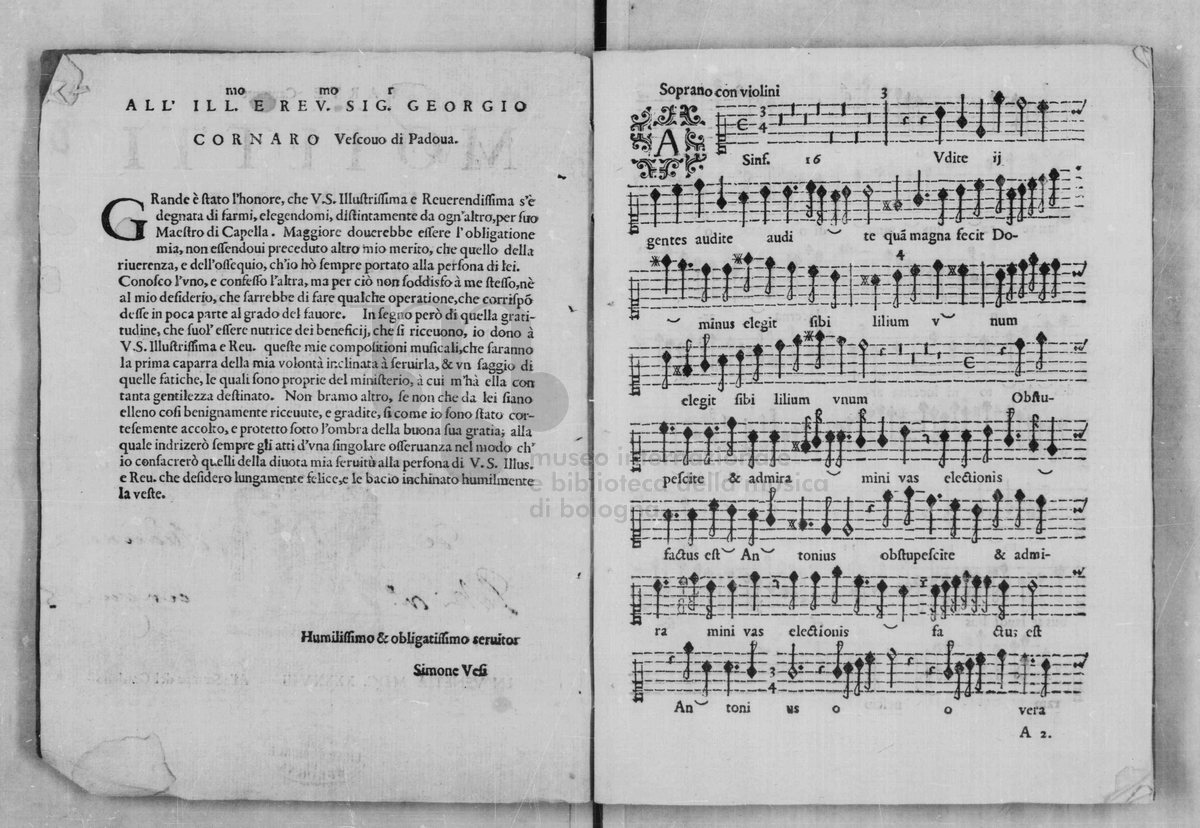 mo mo r
ALL' ILL. E REV. SIG. GEORGIO
CORNARO Veſcouo di Padoua.
GRande è ſtato l'honore, che V.S. Illuſtriſſima e Reuerendiſſima s'è
degnata di farmi, elegendomi, diſtintamente da ogn'altro, per ſuo
Maeſtro di Capella. Maggiore douerebbe eſſere l'obligatione
mia, non eſſendoui preceduto altro mio merito, che quello della
riuerenza, e dell'oſſequio, ch'io hò ſempre portato alla perſona di lei.
Conoſco l'vno, e confeſſo l'altra, ma per ciò non ſoddisfo à me ſteſſo, nè
al mio deſiderio, che ſarrebbe di fare qualche operatione, che corriſpõ
deſſe in poca parte al grado del fauore. In ſegno però di quella grati-
tudine, che ſuol' eſſere nutrice dei beneficij, che ſi riceuono, io dono à
V.S. Illuſtriſſima e Reu. queſte mie compoſitioni muſicali, che ſaranno
la prima caparra della mia volontà inclinata à ſeruirla, & vn ſaggio di
quelle fatiche, le quali ſono proprie del miniſterio, à cui m'hà ella con
tanta gentilezza deſtinato. Non bramo altro, ſe non che da lei ſiano
elleno coſi benignamente riceuute, e gradite, ſi come io ſono ſtato cor-
teſemente accolto, e protetto ſotto l'ombra della buona ſua gratia; alla
quale indrizerò ſempre gli atti d'vna ſingolare oſſeruanza nel modo ch'
io conſacrerò quelli della diuota mia ſeruitù alla perſona di V.S. Illus.
e Reu. che deſidero lungamente felice, e le bacio inchinato humilmente
la veſte.
Humiliſſimo & obligatiſſimo seruitor
Simone Veſi
Soprano con violini
3
A
C 3 4
Sinf. 16 Vdite ij
gentes audite audi te quã magna fecit Do-
4
minus elegit ſibi lilium v num
C
elegit ſibi lilium vnum Obſtu-
peſcite & admira mini vas electionis
factus eſt An tonius obſtupeſcite & admi-
ra mini vas electionis fa ctus eſt
3 4
An toni us o o vera
A 2.
museo internazionale
e biblioteca della musica
di bologna